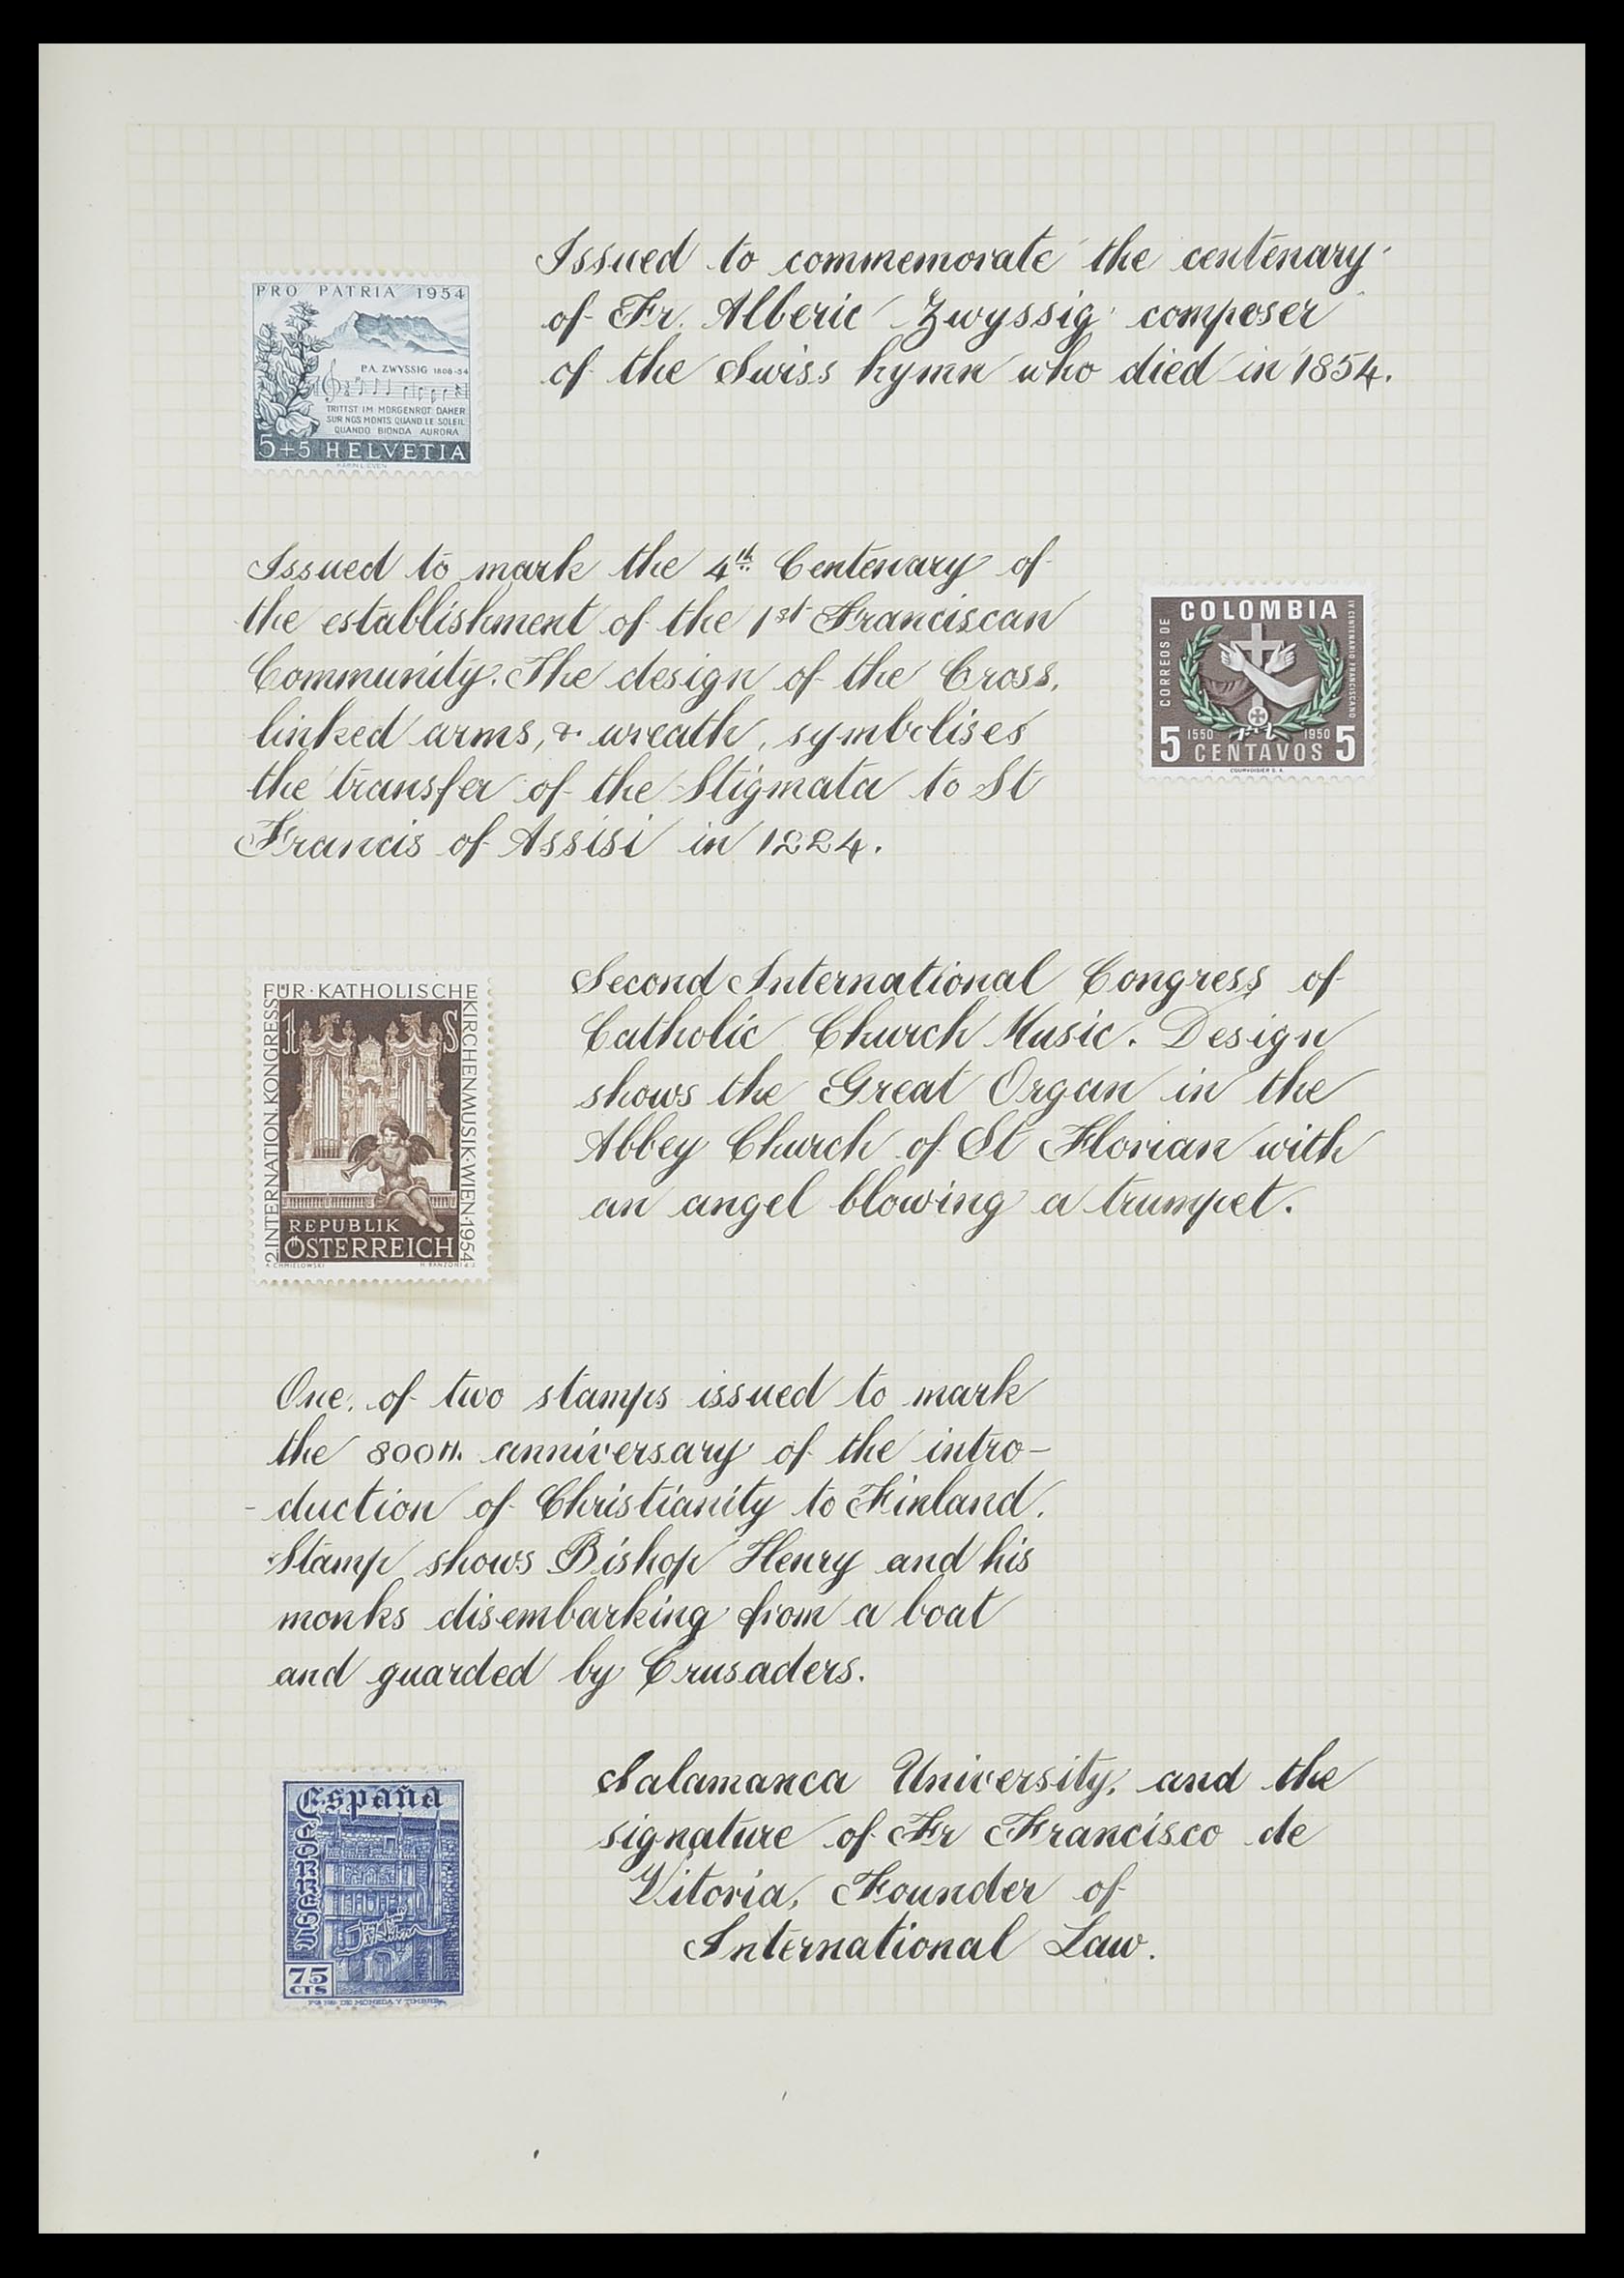 Issued to commemorate the centenary
of Fr. Alberic Zwyssig composer
of the Swiss hymn who died in 1854.
PRO PATRIA 1954
P.A. ZWYSSIG 1808-54
TRITTST IM MORGENROT DAHER
SUR NOS MONTS QUAND LE SOLEIL
QUANDO BIONDA AURORA
5+5 HELVETIA
Issued to mark the 4th Centenary of
the establishment of the 1st Franciscan
Community. The design of the Cross,
linked arms, & wreath, symbolises
the transfer of the Stigmata to St
Francis of Assisi in 1224.
COLOMBIA
CORREOS DE
IV CENTENARIO FRANCISCANO
1550 1950
5 CENTAVOS 5
COURVOISIER S.A.
FÜR·KATHOLISCHE
2.INTERNATION.KONGRESS
KIRCHENMUSIK·WIEN·1954
1 S
REPUBLIK
ÖSTERREICH
A.CHMIELOWSKI H.RANZONI d.J.
Second International Congress of
Catholic Church Music. Design
shows the Great Organ in the
Abbey Church of St Florian with
an angel blowing a trumpet.
One of two stamps issued to mark
the 800th anniversary of the intro-
-duction of Christianity to Finland.
Stamp shows Bishop Henry and his
monks disembarking from a boat
and guarded by Crusaders.
España
CORREOS
75
CTS
Salamanca University, and the
signature of Fr Francisco de
Vitoria, Founder of
International Law.